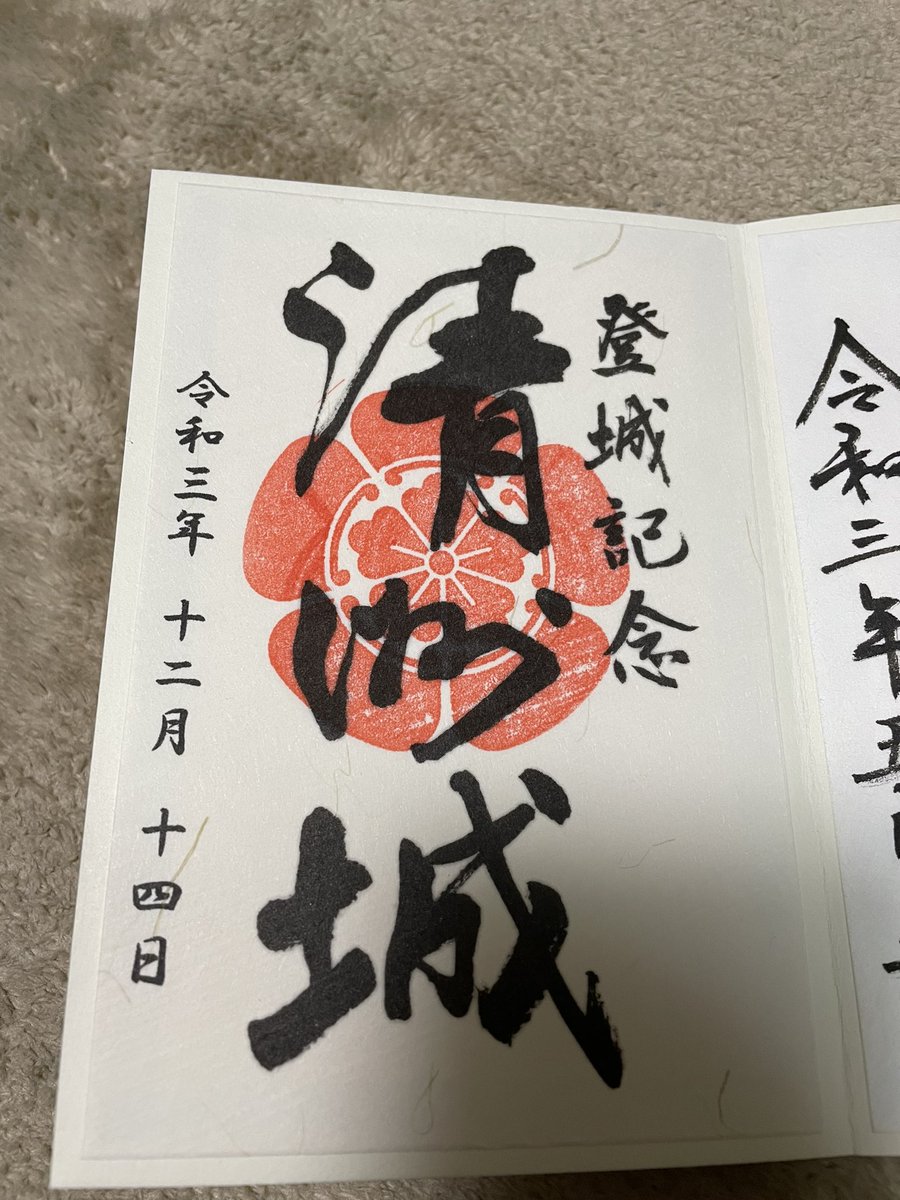 登城記念
清洲城
令和三年 十二月 十四日
令和三年五月